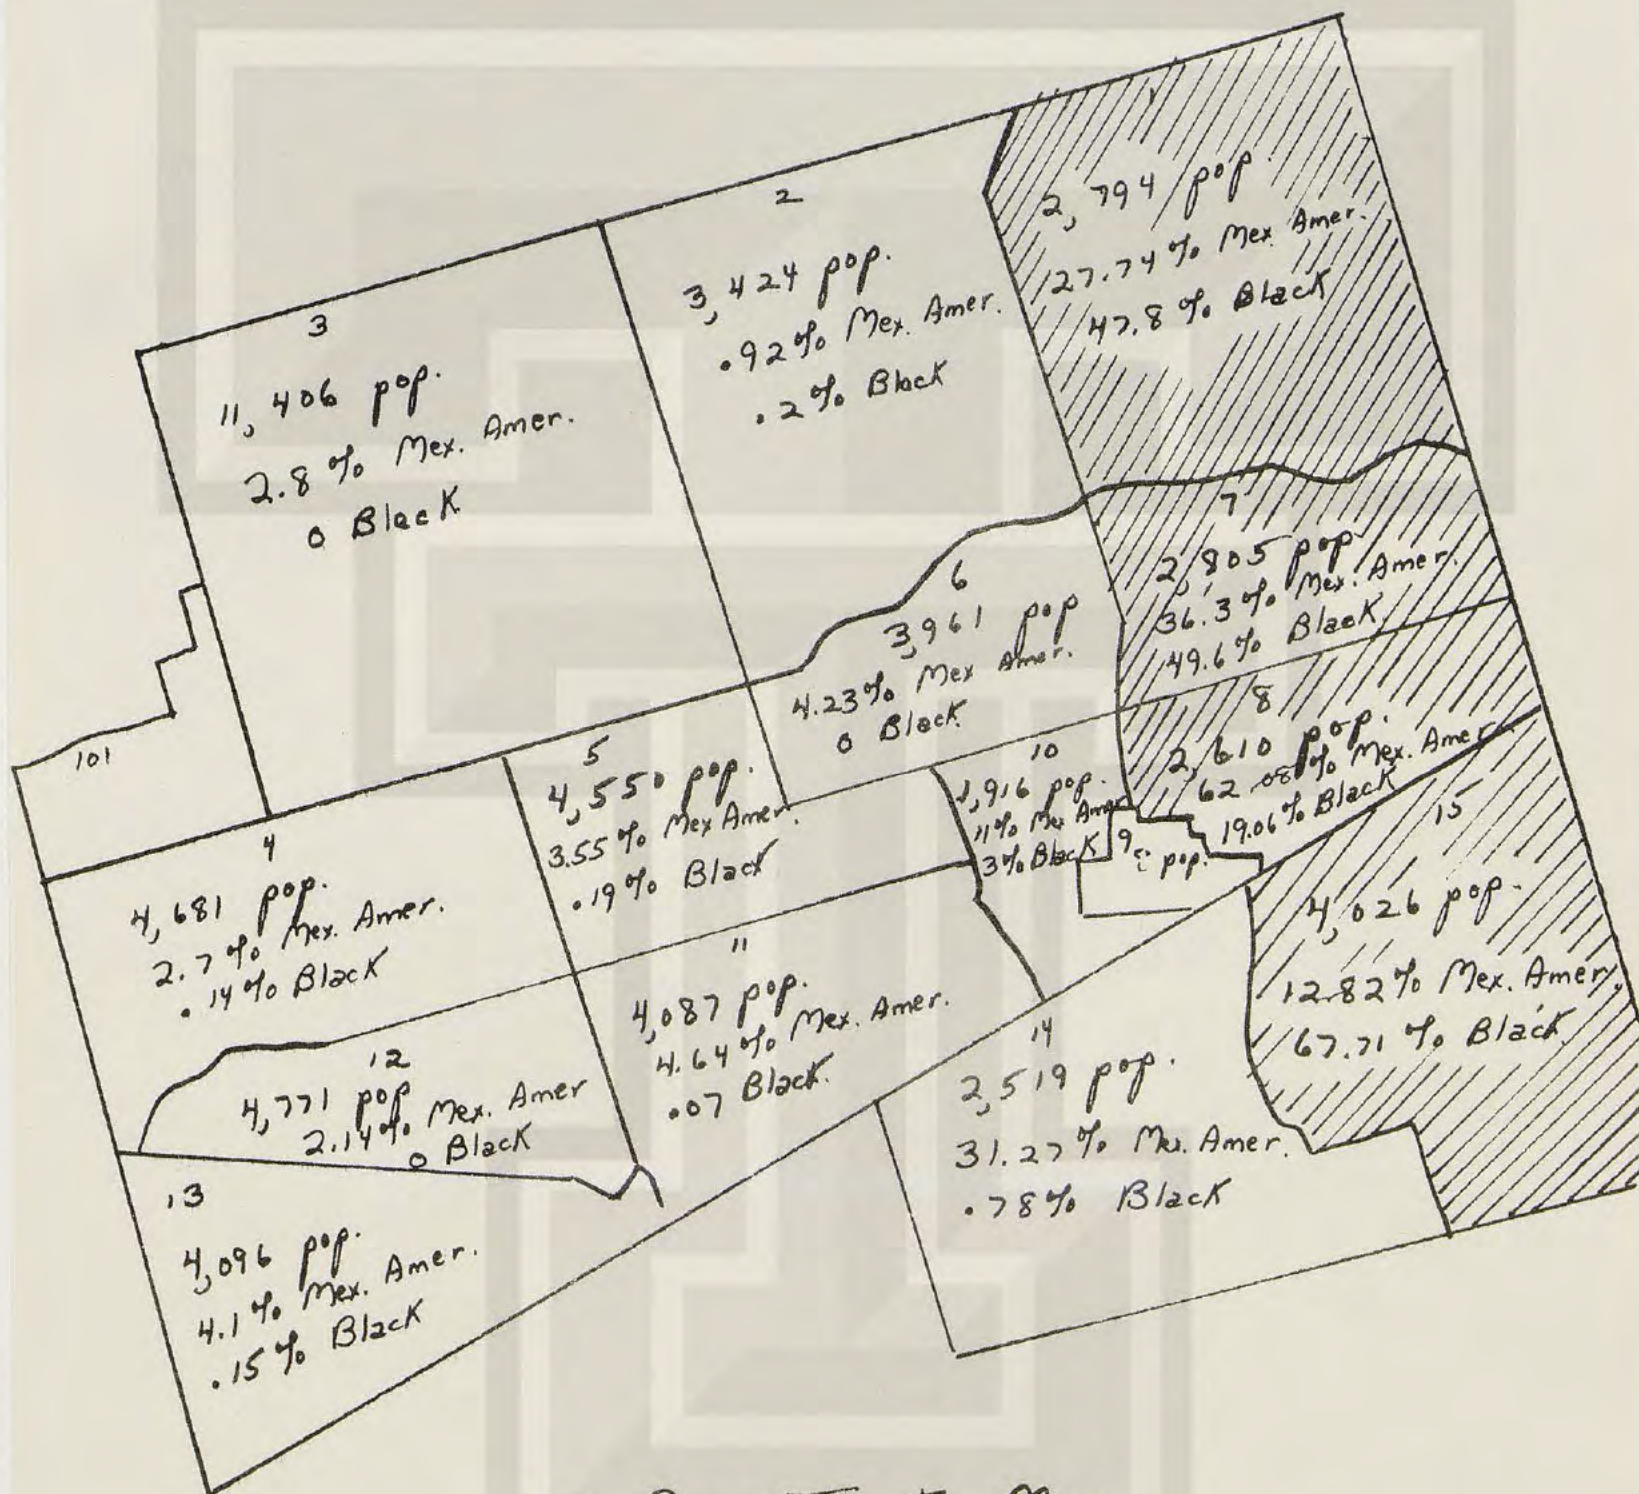 1
2,794 pop
27.74% Mex. Amer.
47.8% Black
2
3,424 pop.
.92% Mex. Amer.
.2% Black
3
11,406 pop.
2.8% Mex. Amer.
0 Black
7
2,805 pop
36.3% Mex. Amer.
49.6% Black
6
3,961 pop
4.23% Mex Amer.
0 Black
8
2,610 pop.
62.08% Mex. Amer
19.06% Black
101
5
4,550 pop.
3.55% Mex Amer.
.19% Black
10
1,916 pop.
11% Mex Amer
3% Black
9
pop.
15
4,026 pop.
12.82% Mex. Amer.
67.71% Black
4
4,681 pop.
2.7% Mex. Amer.
.14% Black
11
4,087 pop.
4.64% Mex. Amer.
.07 Black
12
4,771 pop
2.14% Mex. Amer
0 Black
14
2,519 pop.
31.27% Mex. Amer.
.78% Black
13
4,096 pop.
4.1% Mex. Amer.
.15% Black